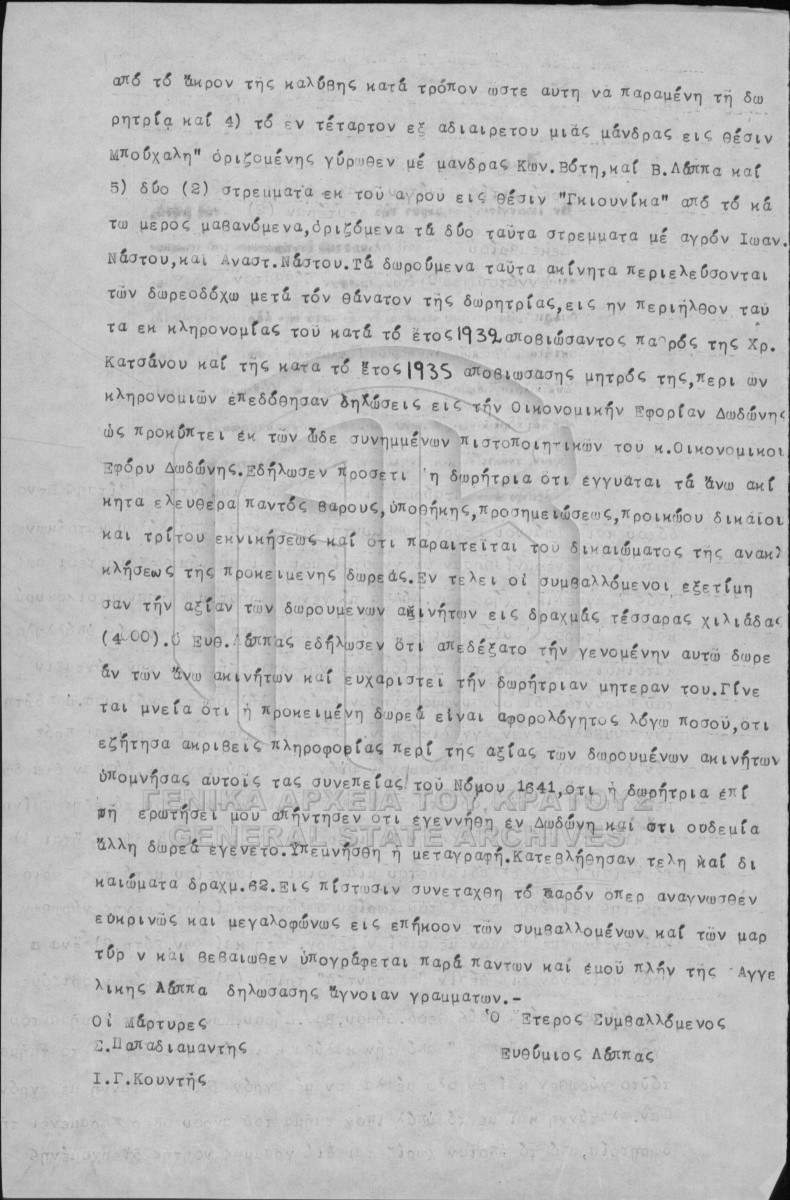 από τό άκρον τής καλύβης κατά τρόπον ώστε αυτη νά παραμένη τή δω
ρητρία καί 4) τό εν τέταρτον εξ αδιαιρετου μιάς μάνδρας εις θέσιν
Μπούχαλη" όριζομένης γύρωθεν μέ μανδρας Κων.Βότη,καί Β.Λάππα καί
5) δύο (2) στρεμματα εκ τού αγρου εις θέσιν "Γκιουνίκα" από τό κά
τω μερος μαβανόμενα,όριζόμενα τά δύο ταύτα στρεμματα μέ αγρόν Ιωαν.
Νάστου,καί Αναστ.Νάστου.Τά δωρούμενα ταύτα ακίνητα περιελεύσονται
τών δωρεοδόχω μετά τόν θάνατον τής δωρητρίας,εις ην περιήλθον ταύ
τα εκ κληρονομίας τού κατά τό έτος 1932 αποβιώσαντος πα ρός της Χρ.
Κατσάνου καί τής κατα τό έτος 1935 αποβιωσασης μητρός της,περι ών
κληρονομιών επεδόθησαν δηλώσεις εις τήν Οικονομικήν Εφορίαν Δωδώνης
ώς προκύπτει έκ τών ώδε συνημμένων πιστοποιητικών του κ.Οικονομικοι
Εφόρυ Δωδώνης.Εδήλωσεν προσετι ή δωρήτρια ότι έγγυαται τά άνω ακί
κητα ελευθέρα παντός βαρους,ύποθήκης,προσημειώσεως,προικώου δικαίοι
και τρίτου εκνικήσεως καί ότι παραιτείται του δικαιώματος τής ανακλ
κλήσεως τής προκειμενης δωρεάς.Εν τελει οί συμβαλλόμενοι εξετίμη
σαν τήν αξίαν τών δωρουμενων ακινήτων εις δραχμάς τέσσαρας χιλιάδας
(4 00).Ο Ευθ.Λάππας εδήλωσεν ότι απεδέξατο τήν γενομένην αυτώ δωρε
άν τών άνω ακινήτων καί ευχαριστεί τήν δωρήτριαν μητεραν του.Γίνε
ται μνεία ότι ή προκειμένη δωρεά είναι αφορολόγητος λόγω ποσού,οτι
εζήτησα ακριβεις πληροφορίας περί της αξίας τών δωρουμένων ακινήτων
ύπομνήσας αυτοίς τας συνεπείας τού Νόμου 1641,ότι ή δωρήτρια έπί
πή ερωτήσεί μου απήντησεν οτι έγεννήθη έν Δωδώνη καί οτι ουδεμία
άλλη δωρεά έγένετο.Υπεμνήσθη ή μεταγραφή.Κατεβλήθησαν τελη καί δι
καιώματα δραχμ.62.Εις πίστωσιν συνεταχθη τό παρόν οπερ αναγνωσθέν
εύκρινώς και μεγαλοφώνως εις επήκοον τών συμβαλλομένων καί τών μαρ
τύρ ν και βεβαιωθεν ύπογράφεται παρά παντων καί έμού πλήν τής Αγγε
λικης Λάππα δηλωσασης άγνοιαν γραμματων.-
Οί Μάρτυρες Ό Ετερος Συμβαλλόμενος
Σ.Παπαδιαμαντης Ευθύμιος Λάππας
Ι.Γ.Κουντής
ΓΕΝΙΚΑ ΑΡΧΕΙΑ ΤΟΥ ΚΡΑΤΟΥΣ
GENERAL STATE ARCHIVES